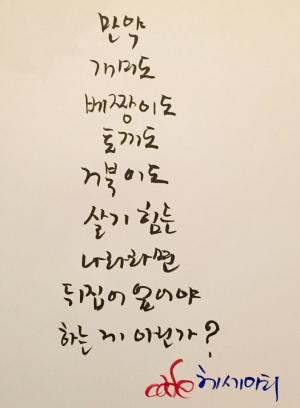 만약
개미도
베짱이도
토끼도
거북이도
살기 힘든
나라라면
뒤집어 엎어야
하는 게 아닌가?
cafe 헤세이티